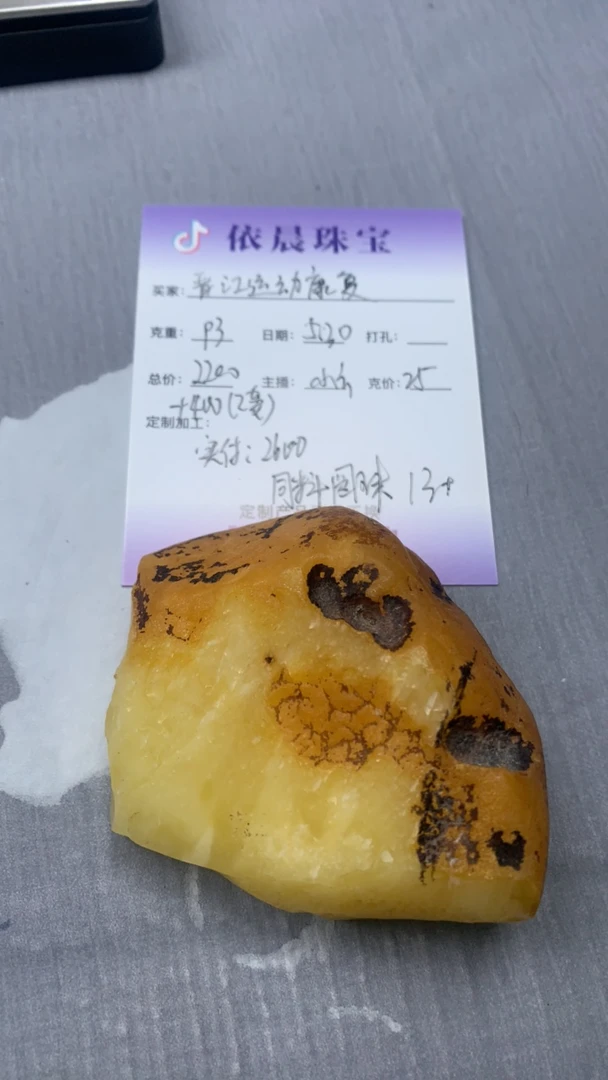 依晨珠宝
买家: 晋江运动康复
克重: 93 日期: 5.30 打孔:
总价: 2200 主播: 克价: 25
+400(2套)
定制加工:
实付: 2600
同料圆珠 13+
定制产品